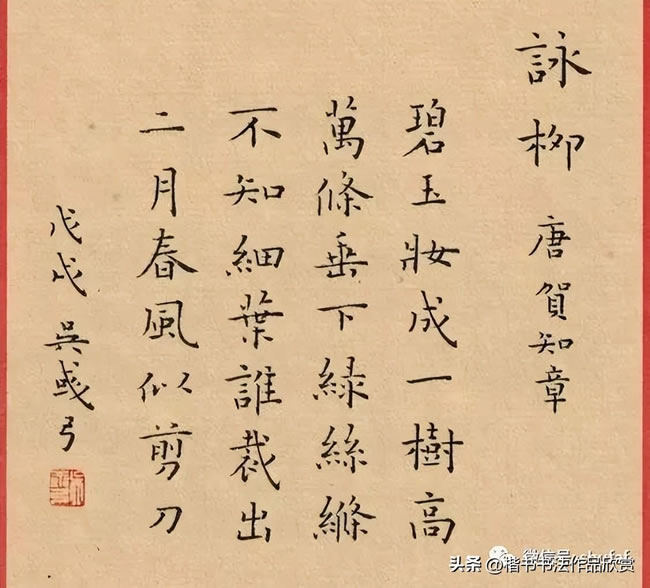 詠柳 唐賀知章
碧玉妝成一樹高
萬條垂下緑絲縧
不知細葉誰裁出
二月春風似剪刀
戊戌 吳彧弓
微信号: shufaf
头条 @楷书书法作品欣赏